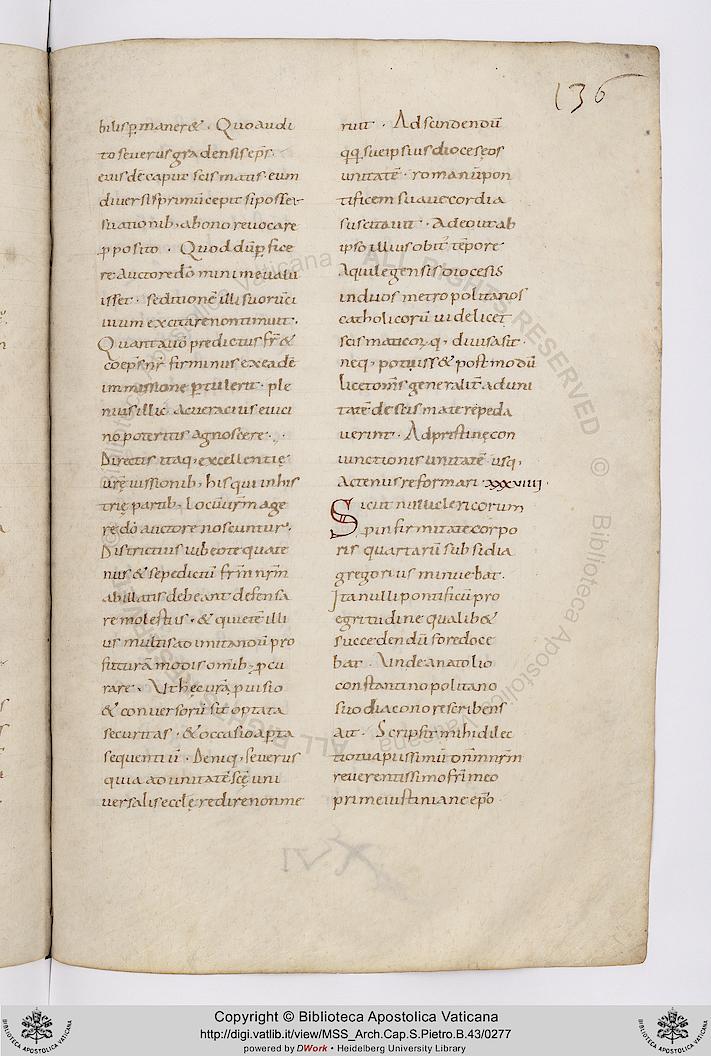 136
bilis p̱maner&. Quo audi
to severus gradensis ep̄s.
eiusde caput scismatis. eum
diversis primū cepit si posset
suationib; a bono revocare
p̱posito. Quod dūp̱fice
re auctore dō minime valu
isset. seditionē illi suorū ci
vium excitare non timuit.
Quanta vō predictus fr̄ &
coep̄s nr̄ firminus ex eadē
immissione p̱tulerit. ple
nius illic. ac veracius e vici
no poteritis agnoscere.
Directis itaq; excellentię
vr̄ę iussionib; his qui in his
trię partib; locū vr̄m age
re dō auctore noscuntur.
Districtius iubeote quate
nus & sepedictū fr̄m nr̄m
ab illatis debeant defensa
re molestus. & quietē illi
us multis ad imitandū pro
futurā modis omib; p̱cu
rare. Ut hęc vr̄a p̱visio
& conversorū sit optata
securitas. & occasio ap̱ta
sequentiū. Deniq; severus
quia ad unitatē sc̄ę uni
versalis eccl̄ę redire non me
ruit. Ad scindendū
q;q; suę ipsius dioceseos
unitatē. romanū pon
tificem sua vecordia
suscitavit. Adeo ut ab
ipso illius obitȳ tēpore
Aquilegensis diocesis
in duos metropolitanos
catholicorū videlicet
scismaticor; q; divisa sit.
neq; potuiss& post modū
licet om̄s generalit̄ ad uni
tatē de scismate repeda
verint. Ad pristinę con
iunctionis unitatē usq;
Actenus reformari. xxxviiii.
Sicut nullius clericorum
p̱ infirmitate corpo
ris quartarū subsidia
gregorius minuebat.
Ita nulli pontificū pro
egritudine qualib&
succedendū fore doce
bat. Unde anatolio
constantinopolitano
suo diacono rescribens
ait. Scripsit mihi dilec
tio tua piissimū dn̄m nr̄m
reverentissimo fr̄i meo
prime iustinianę ep̄o
Copyright © Biblioteca Apostolica Vaticana
http://digi.vatlib.it/view/MSS_Arch.Cap.S.Pietro.B.43/0277
powered by DWork • Heidelberg University Library